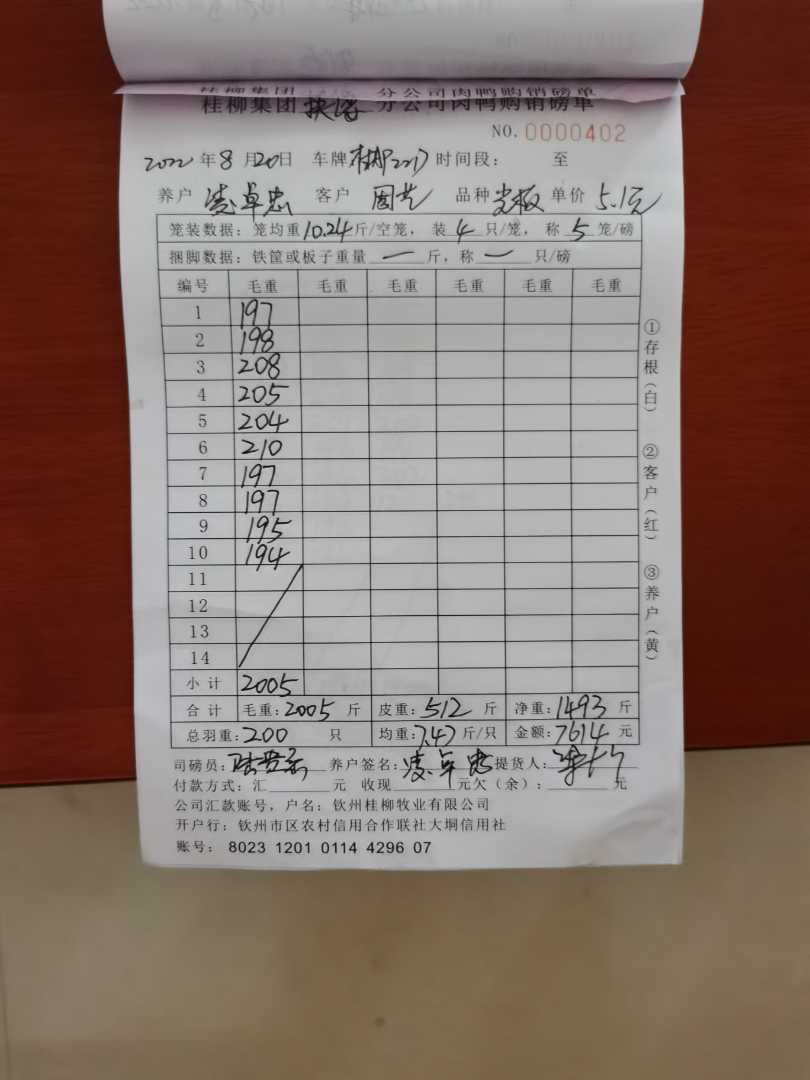 桂柳集团 分公司肉鸭购销磅单
NO. 0000402
2022年8月20日 车牌 时间段: 至
养户 凌卓忠 客户 周艺 品种 光板 单价 5.1元
笼装数据: 笼均重10.24斤/空笼, 装4只/笼, 称5笼/磅
捆脚数据: 铁筐或板子重量 一 斤, 称 一 只/磅
编号 毛重 毛重 毛重 毛重 毛重 毛重
1 197
2 198
3 208
4 205
5 204
6 210
7 197
8 197
9 195
10 194
11
12
13
14
小计 2005
合计 毛重: 2005 斤 皮重: 512 斤 净重: 1493 斤
总羽重: 200 只 均重: 7.47 斤/只 金额: 7614 元
司磅员: 养户签名: 凌卓忠 提货人:
付款方式: 汇 元 收现 元欠(余): 元
公司汇款账号, 户名: 钦州桂柳牧业有限公司
开户行: 钦州市区农村信用合作联社大垌信用社
账号: 8023 1201 0114 4296 07
①存根(白)
②客户(红)
③养户(黄)